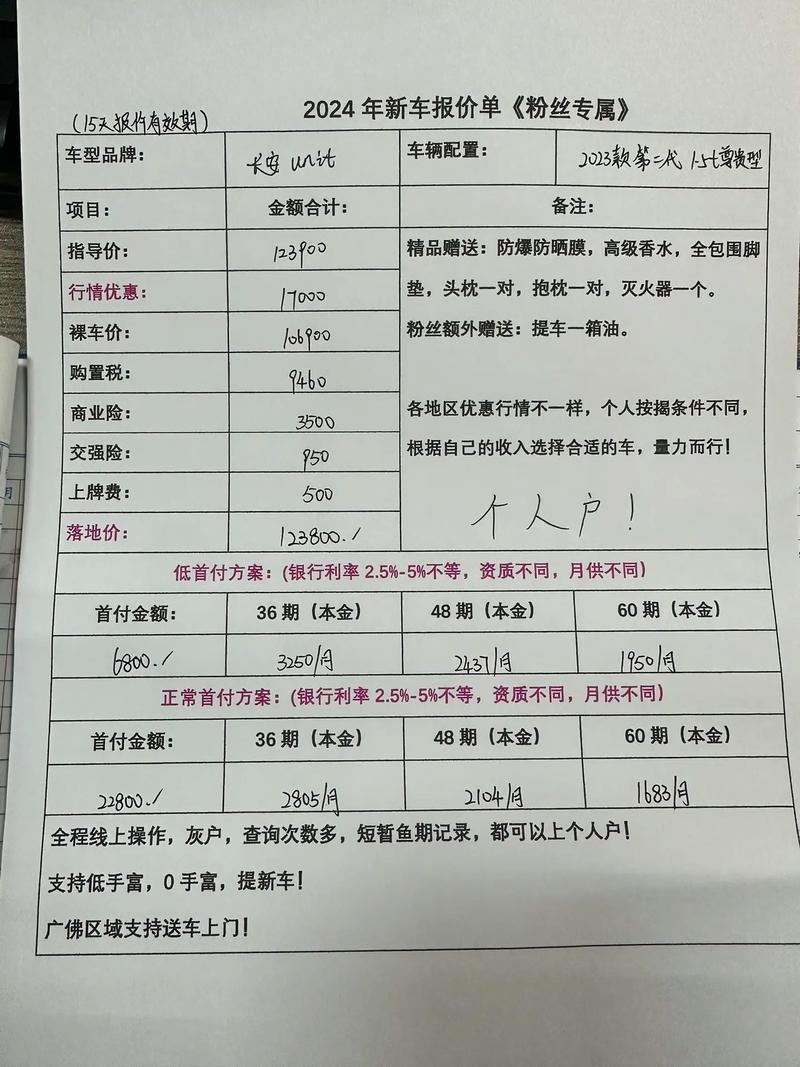 2024 年新车报价单《粉丝专属》
(15天报价有效期)
车型品牌： 长安 unit 车辆配置： 2023款第二代 1.5t尊贵型
项目： 金额合计： 备注：
指导价： 123900 精品赠送：防爆防晒膜，高级香水，全包围脚
行情优惠： 17000 垫，头枕一对，抱枕一对，灭火器一个。
裸车价： 106900 粉丝额外赠送：提车一箱油。
购置税： 9460
商业险： 3500 各地区优惠行情不一样，个人按揭条件不同，
交强险： 950 根据自己的收入选择合适的车，量力而行！
上牌费： 500 个人户！
落地价： 123800.
低首付方案：（银行利率 2.5%-5%不等，资质不同，月供不同）
首付金额： 36 期（本金） 48 期（本金） 60 期（本金）
6800. 3250/月 2437/月 1950/月
正常首付方案：（银行利率 2.5%-5%不等，资质不同，月供不同）
首付金额： 36 期（本金） 48 期（本金） 60 期（本金）
22800. 2805/月 2104/月 1683/月
全程线上操作，灰户，查询次数多，短暂鱼期记录，都可以上个人户！
支持低手富，0 手富，提新车！
广佛区域支持送车上门！